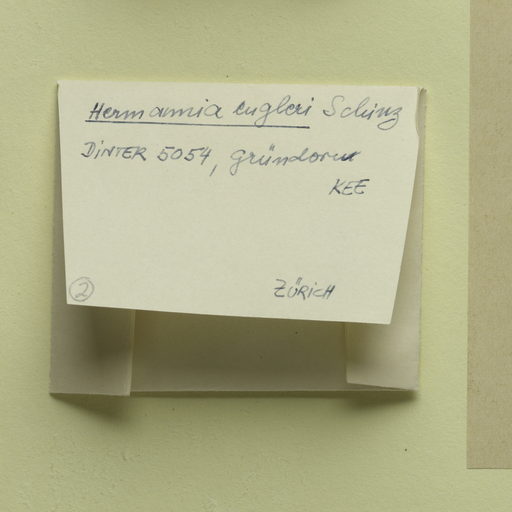 Hermannia engleri Schinz
DiNTER 5054, Gründorn
KEE
ZÜRICH
2